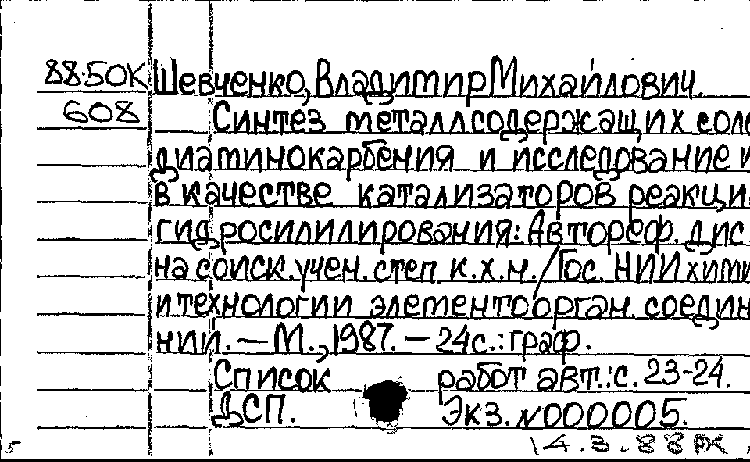 88.50К Шевченко, Владимир Михайлович.
608 Синтез металлсодержащих соле
диаминокарбения и исследование и
в качестве катализаторов реакци
гидросилилирования: Автореф. дис
на соиск. учен. степ. к.х.н. / Гос. НИИ хими
и технологии элементоорган. соедин
ний. — М., 1987. — 24с.: граф.
Список работ авт.: с. 23-24.
ДСП. Экз. №000005.
14.3.88 РЖ